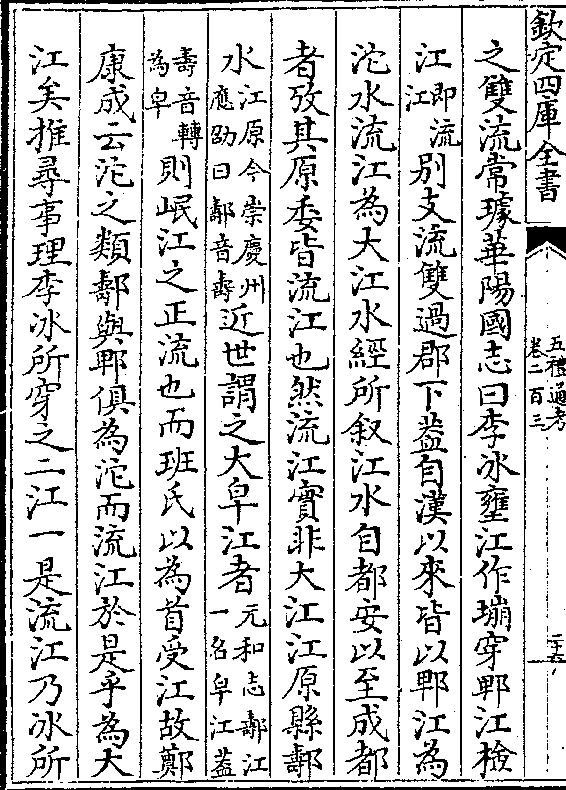 欽定四庫全書
五禮通考
卷二百三
二十五
之雙流常璩華陽國志曰李冰壅江作堋穿郫江檢
江即流江别支流雙過郡下葢自漢以來皆以郫江為
沱水流江為大江水經所叙江水自都安以至成都
者攷其原委皆流江也然流江實非大江江原縣鄩
水江原今崇慶州應劭曰鄩音壽近世謂之大皁江者元和志鄩江一名皁江葢
壽音轉為皁則岷江之正流也而班氏以為首受江故鄭
康成云沱之類鄩與郫俱為沱而流江於是乎為大
江矣推尋事理李冰所穿之二江一是流江乃冰所